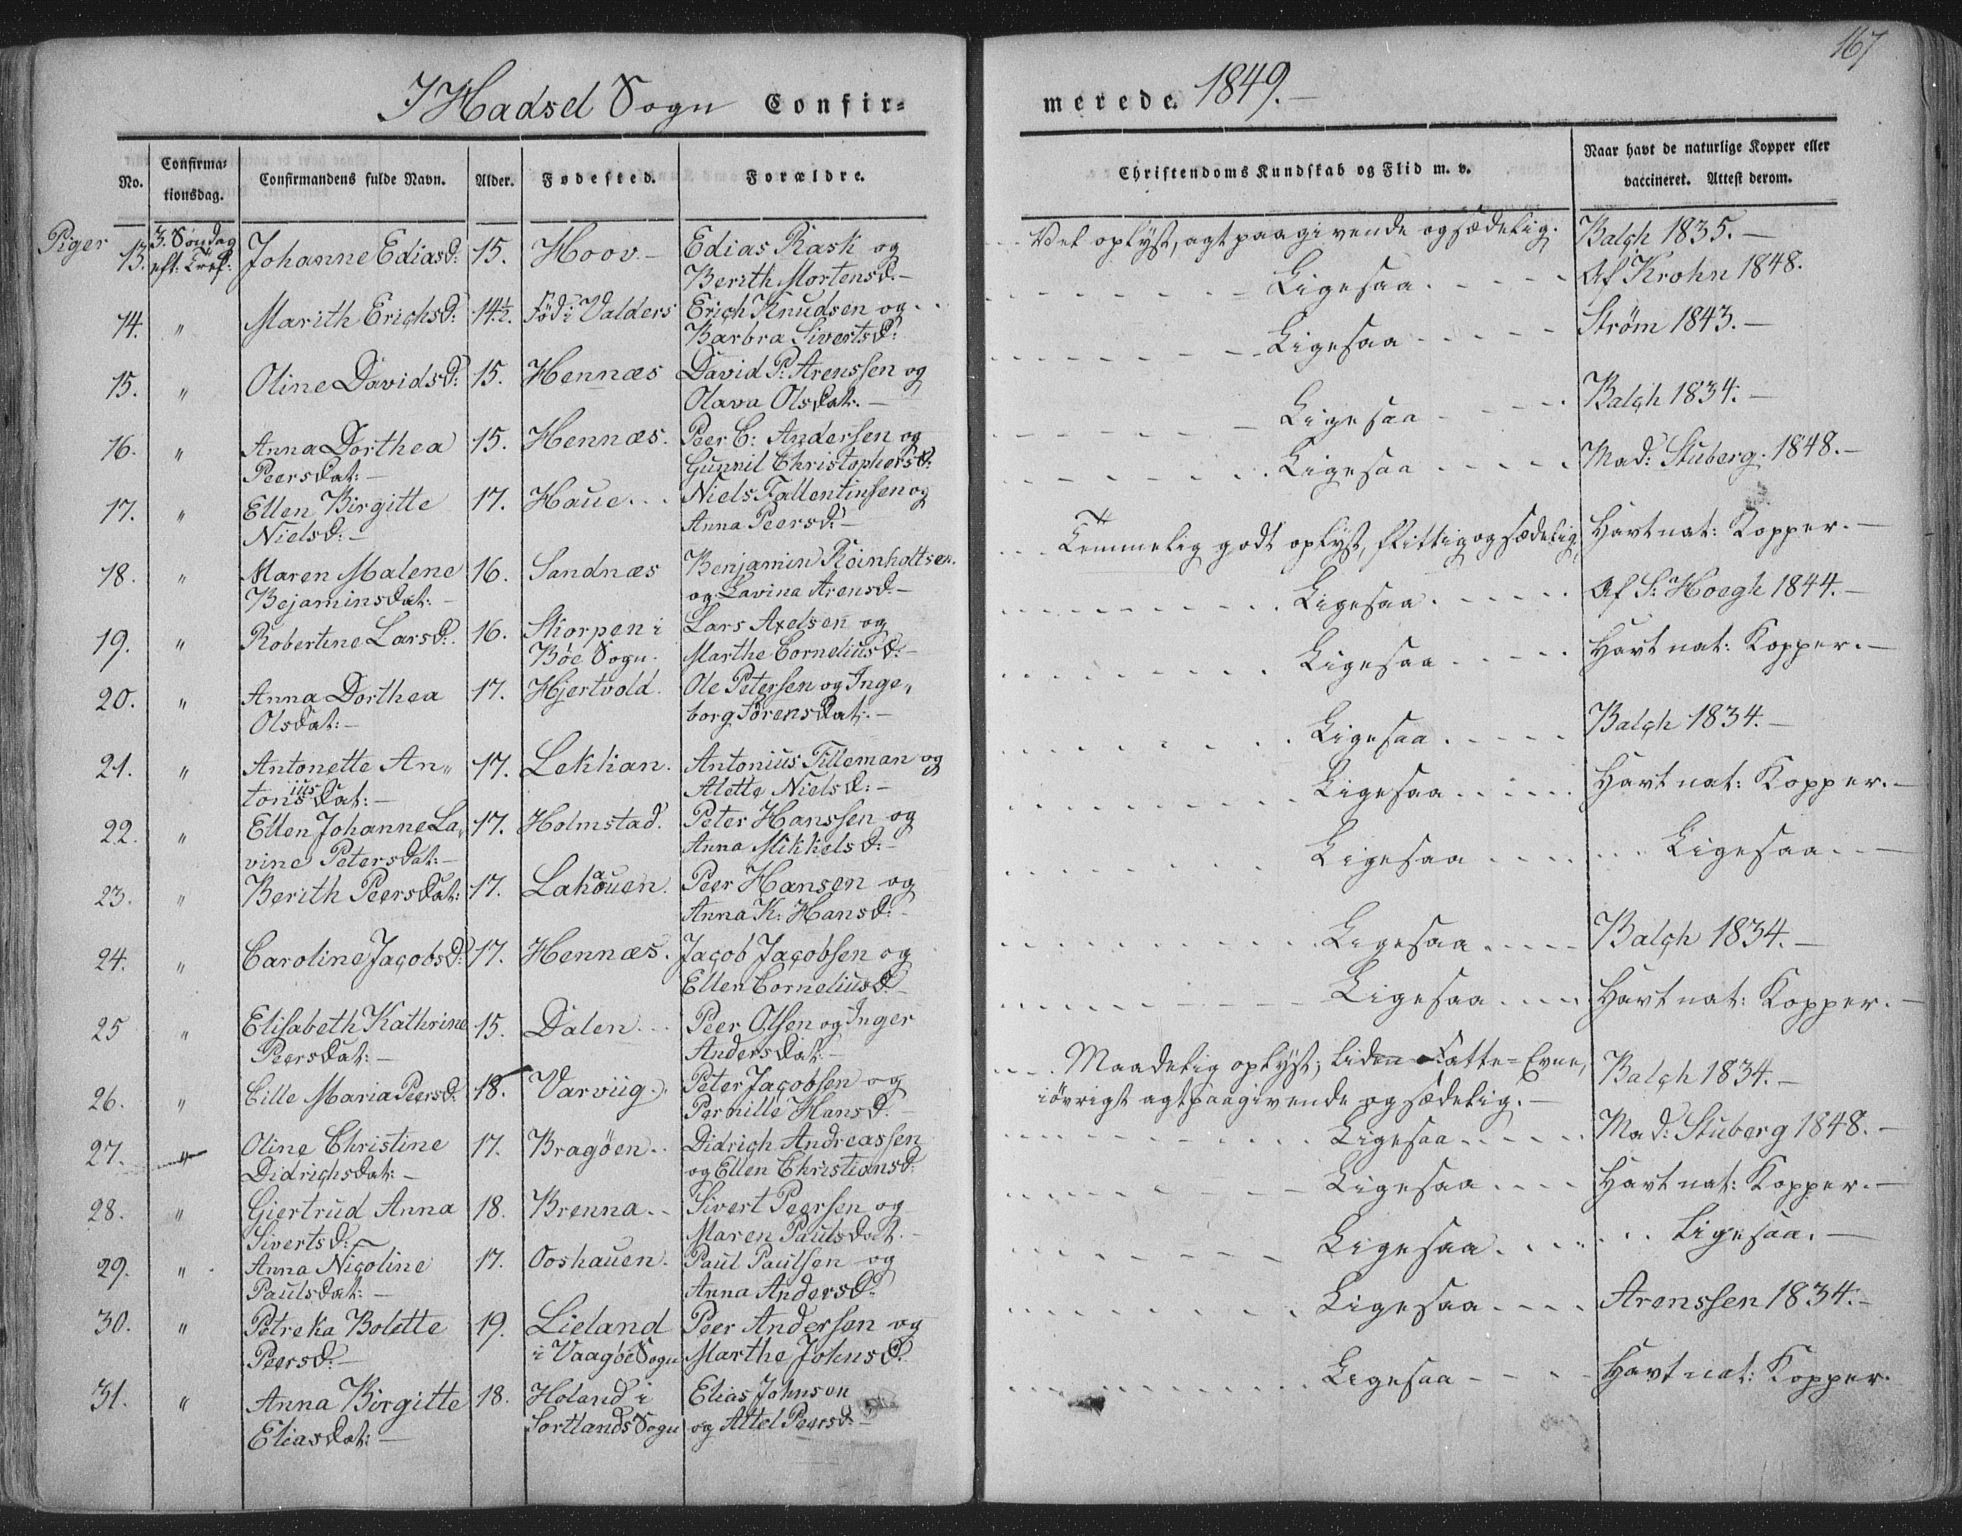 167
I Hadsel Sogn Confir-
merede. 1849.-
No. Confirma-tionsdag. Confirmandens fulde Navn. Alder. Fødested. Forældre. Christendoms Kundskab og Flid m. v. Naar havt de naturlige Kopper eller vaccineret. Attest derom.
Piger 13. 3. Søndag Johanne Ediasd: 15. Hoov.- Edias Rask og Vel oplyst, agtpaagivende og sædelig. Balch 1835.-
eft: Tref: Berith Mortensd.- Ligesaa Af Krohn 1848.
14. " Marith Erichsd: 14½. Fød i Valders Erich Knudsen og
Barbra Sivertsd: Ligesaa Strøm 1843.-
15. " Oline Davidsd: 15. Hennæs David P: Arenssen og
Olava Olsdat:- Ligesaa Balch 1834.-
16. " Anna Dorthea 15. Hennæs. Peer C: Andersen og
Peersdat:- Gunnil Christophersd: Ligesaa Mad: Stuberg. 1848.-
17. " Ellen Birgitte 17. Haue Niels Fallentinsen og
Nielsd:- Anna Peersd:- Temmelig godt oplyst, flittig og sædelig. Havt nat: Kopper.-
18. " Maren Malene 16. Sandnæs Benjamin Roinholtsen.
Bejaminsdat:- og Lavina Arensd.- Ligesaa Af S: Hoegh 1844.-
19. " Robertine Larsd:. 16. Skorpen i Lars Axelsen og
Böe Sogn. Marthe Corneliusd:- Ligesaa Havt nat: Kopper.-
20. " Anna Dorthea 17. Hjertvold. Ole Petersen og Inge„
Olsdat:- borg Sörensdat:- Ligesaa Balch 1834.-
21. " Antonette An„ 17. Lekhan. Antonius Tilleman og
toniusdat:- Alette Nielsd:- Ligesaa Havt nat: Kopper.-
22. " Ellen Johanne La„ 17. Holmstad. Peter Hanssen og
vine Petersdat:- Anna Mikkelsd:- Ligesaa Ligesaa
23. " Berith Peersdat: 17. Lahauen. Peer Hansen og
Anna K: Hansd:- Ligesaa Balch 1834.-
24. " Caroline Jacobsd: 17. Hennæs. Jacob Jacobsen og
Ellen Corneliusd:- Ligesaa Havt nat: Kopper.-
25 " Elisabeth Kathrine 15. Dalen Peer Olsen og Inger
Peersdat:- Andersdat:- Maadelig oplyst; liden Fatte=Evne, Balch 1834.-
26. " Cille Maria Peersd. 18. Varviig. Peter Jacobsen og iövrigt agtpaagivende og sædelig.-
Pernille Hansd:- Ligesaa Mad: Stuberg 1848.-
27. " Oline Christine 17. Bragöen Didrich Andreassen
Didrichsdat:- og Ellen Christiansd: Ligesaa Havt nat: Kopper.-
28. " Giertrud Anna 18. Brenna Sivert Peersen og
Sivertsd:- Maren Paulsdat.- Ligesaa Ligesaa.-
29. " Anna Nicoline 17. Ooshauen. Paul Paulsen og
Paulsdat:- Anna Andersd:- Ligesaa Arenssen 1834.-
30. " Petreka Bolette 19. Lieland Peer Andersen og
Peersd:- i Vaagöe Sogn Marthe Johnsd: Ligesaa Havt nat: Kopper.
31. " Anna Birgitte 18. Holand i Elias Johnson
Eliasdat:- Sortlands Sogn og Altel Peersd:-